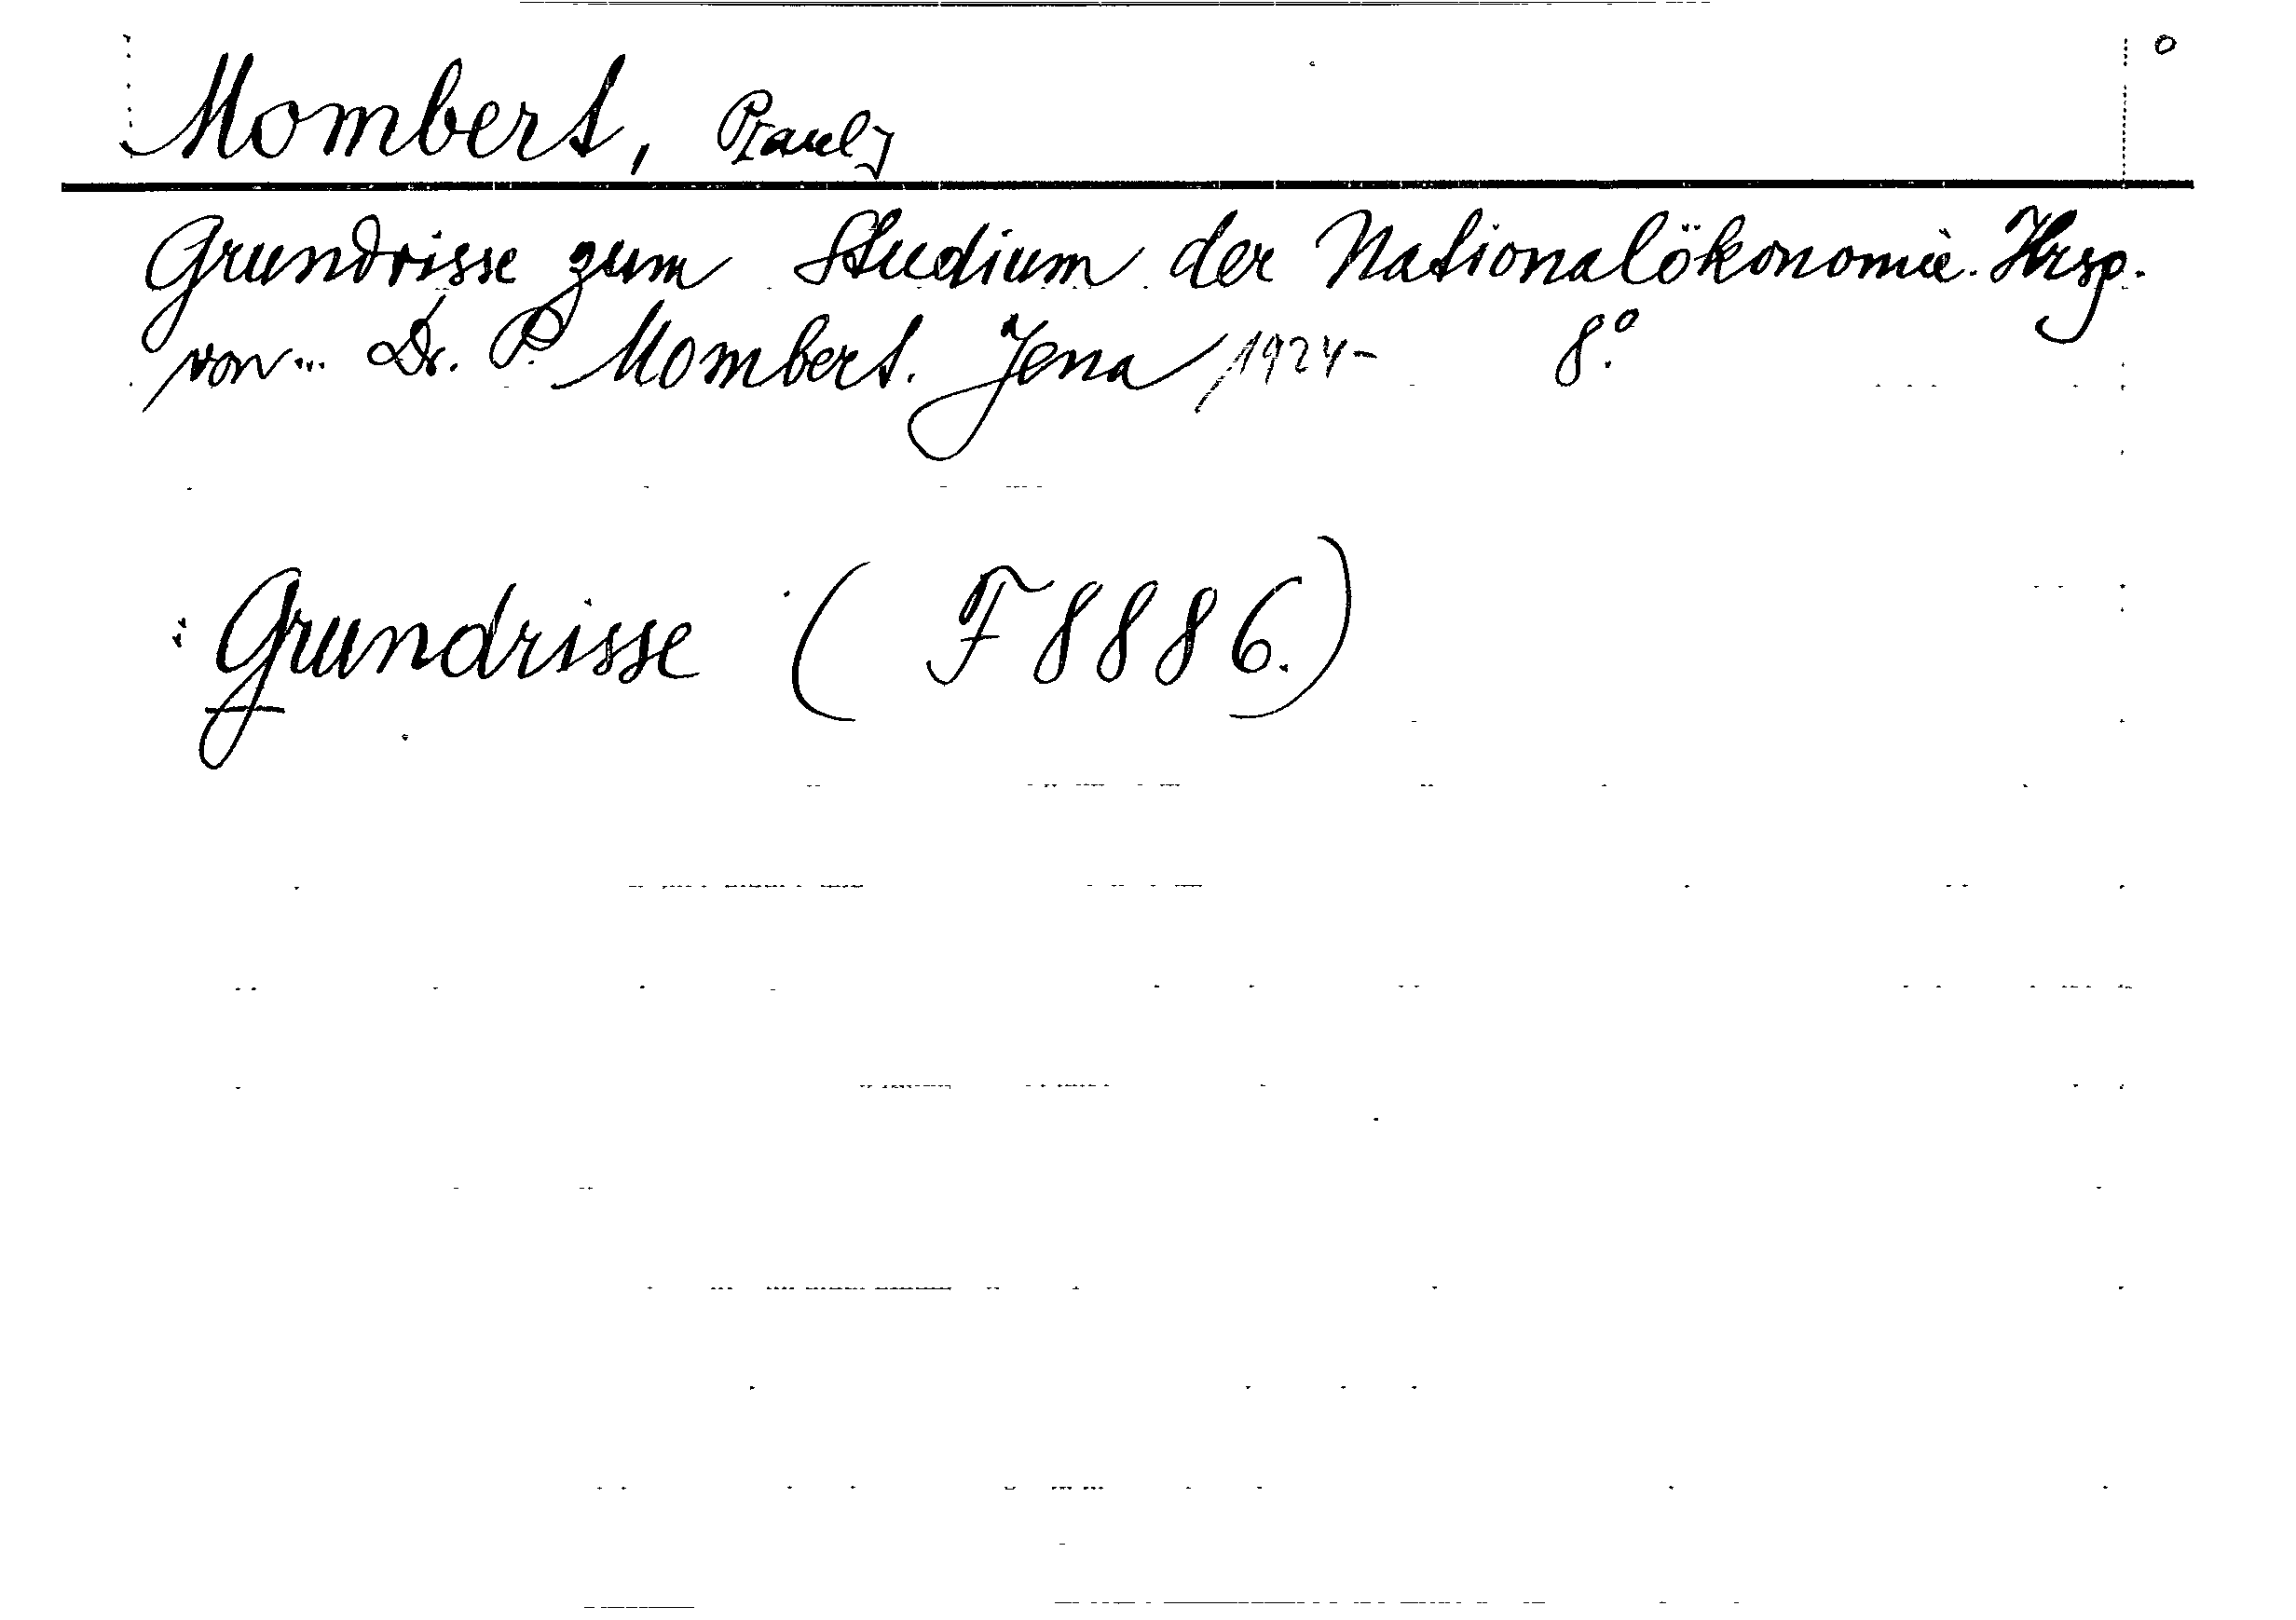 Mombert, P[aul]
Grundrisse zum Studium der Nationalökonomie. Hrsg.
von ... Dr. P. Mombert. Jena 1924- 8.°
: Grundrisse ( F 8886.)